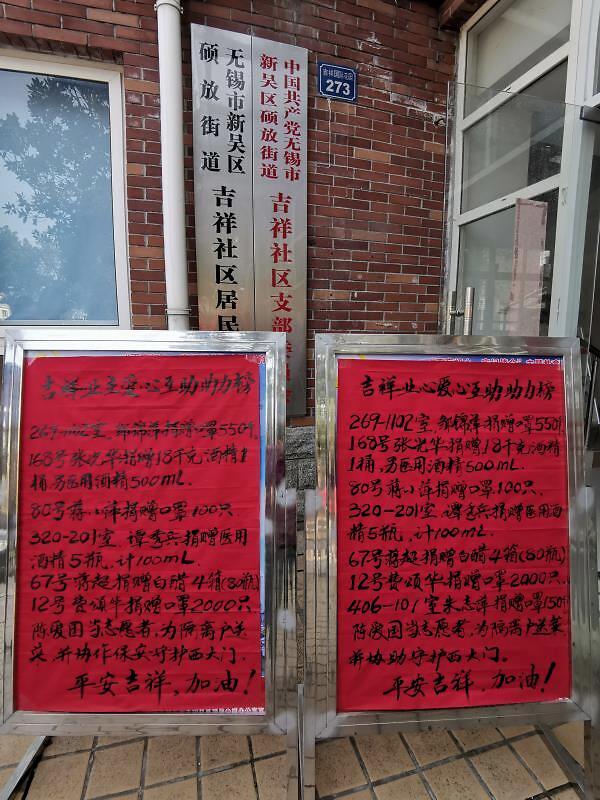 中国共产党无锡市
新吴区硕放街道
吉祥社区支部
无锡市新吴区
硕放街道
吉祥社区居民
吉祥国际花园
273
吉祥业主爱心互助助力榜
269-1102室.邹锦萍捐赠口罩550个.
168号张光华捐赠18千克酒精1
桶.另医用酒精500mL.
80号蒋小萍捐赠口罩100只
320-201室.谭秀兵捐赠医用
酒精5瓶.计100mL.
67号蒋超捐赠白醋4箱(80瓶)
12号费颂华捐赠口罩2000只.
陈爱国当志愿者,为隔离户送
菜.并协作保安守护西大门.
平安吉祥.加油!
吉祥业心爱心互助助力榜
269-1102室.邹锦萍捐赠口罩550个.
168号张光华捐赠18千克酒精
1桶.另医用酒精500mL.
80号蒋小萍捐赠口罩100只.
320-201室.谭秀兵捐赠医用酒
精5瓶.计100mL.
67号蒋超捐赠白醋4箱(80瓶)
12号费颂华捐赠口罩2000只.
406-101室朱志萍捐赠口罩150个
陈爱国当志愿者.为隔离户送菜
并协助守护西大门.
平安吉祥.加油!